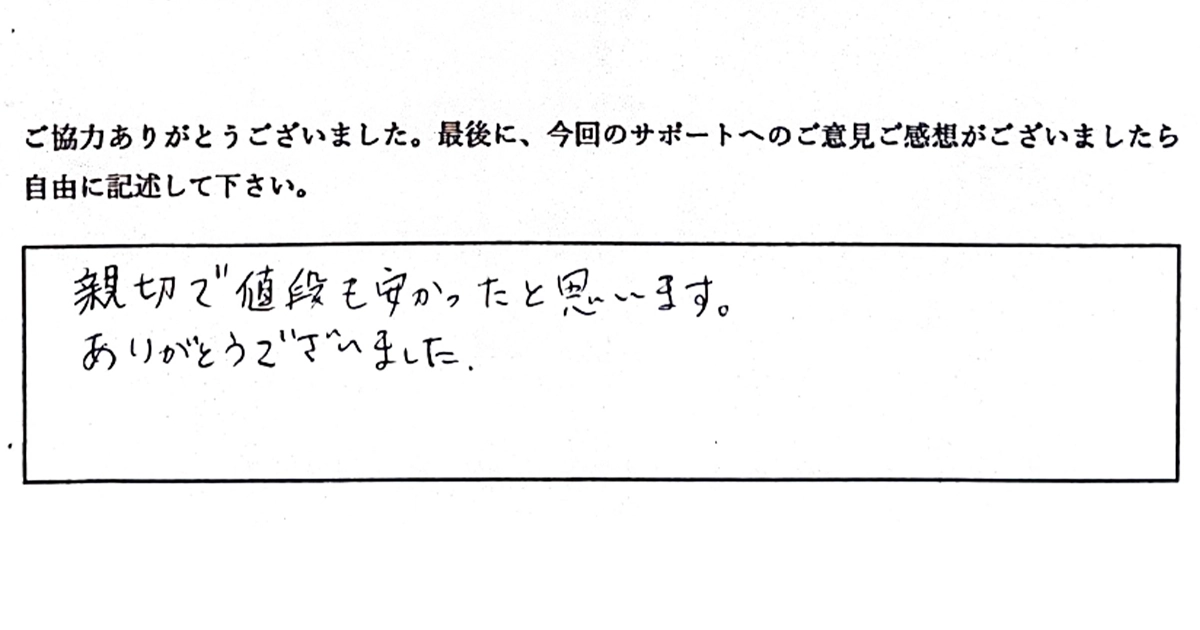 ご協力ありがとうございました。最後に、今回のサポートへのご意見ご感想がございましたら
自由に記述して下さい。
親切で値段も安かったと思います。
ありがとうございました.